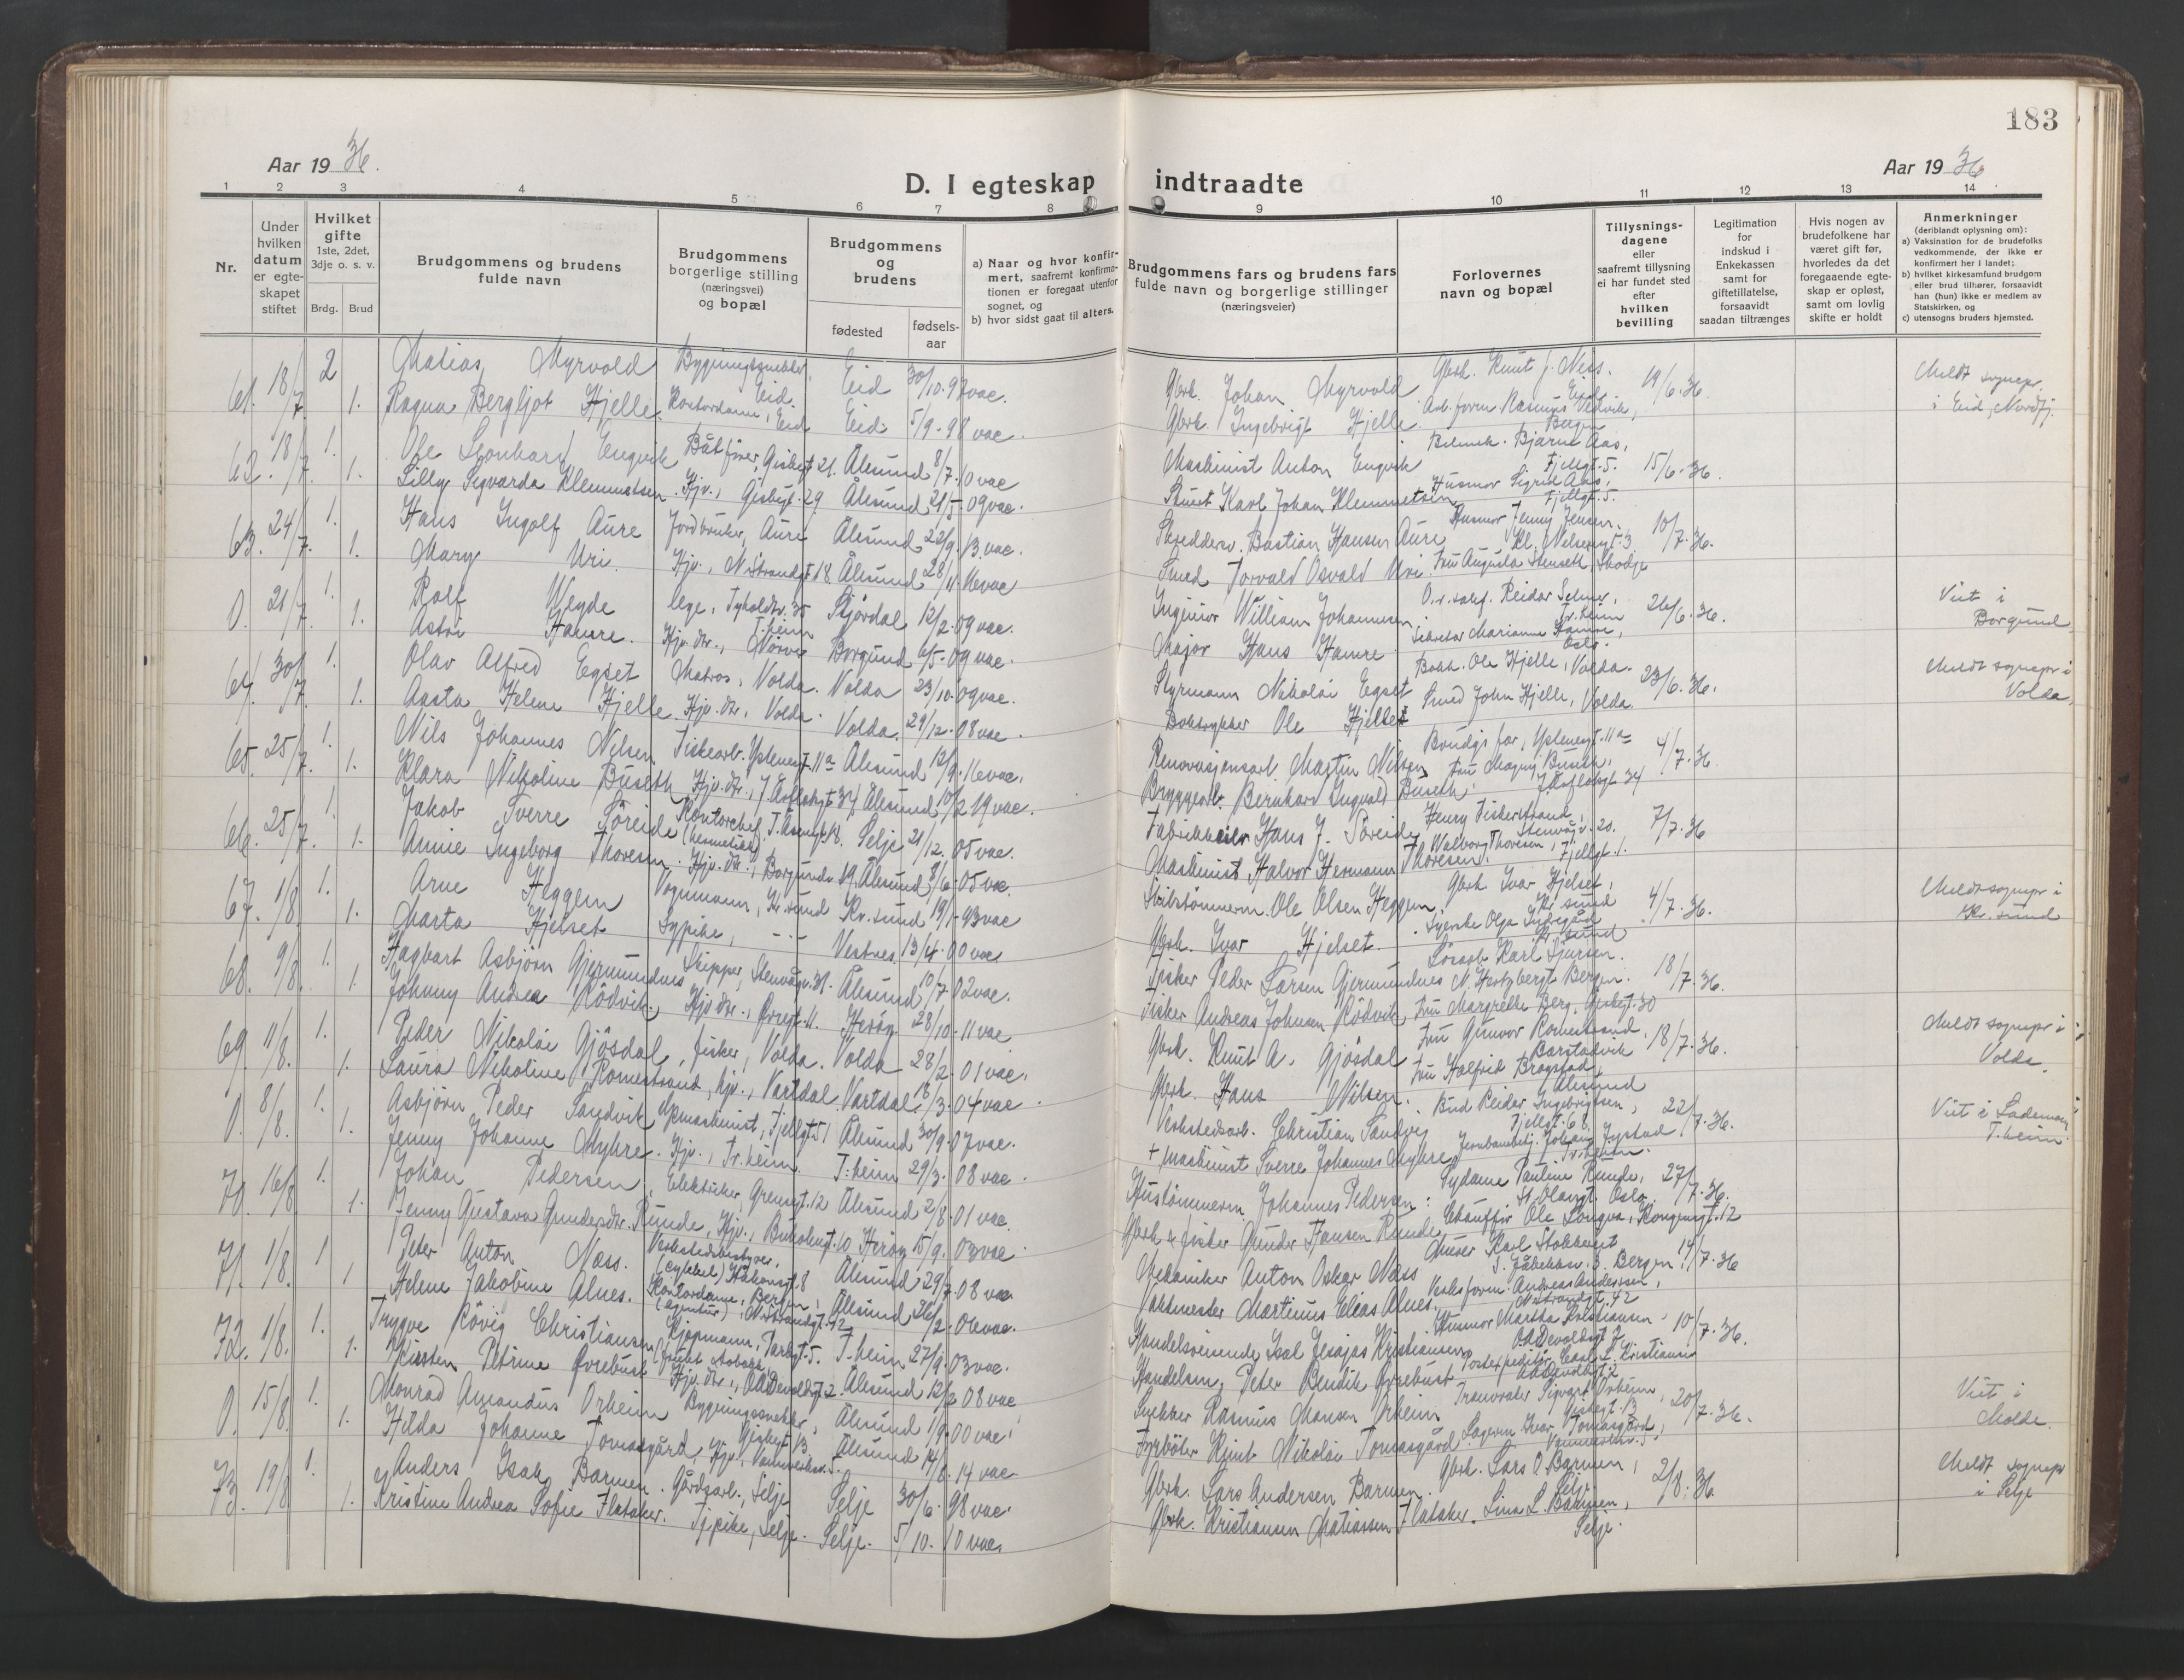 183
Aar 1936.
Aar 1936
D. I egteskap indtraadte
1 2 3 4 5 6 7 8 9 10 11 12 13 14
Nr.
Under hvilken datum er egteskapet stiftet
Hvilket gifte 1ste, 2det, 3dje o. s. v.
Brdg. Brud
Brudgommens og brudens fulde navn
Brudgommens borgerlige stilling (næringsvei) og bopæl
Brudgommens og brudens
fødested
fødselsaar
a) Naar og hvor konfirmert, saafremt konfirmationen er foregaat utenfor sognet, og
b) hvor sidst gaat til alters.
Brudgommens fars og brudens fars fulde navn og borgerlige stillinger (næringsveier)
Forlovernes navn og bopæl
Tillysningsdagene eller saafremt tillysning ei har fundet sted efter hvilken bevilling
Legitimation for indskud i Enkekassen samt for giftetillatelse, forsaavidt saadan tiltrænges
Hvis nogen av brudefolkene har været gift før, hvorledes da det foregaaende egteskap er opløst, samt om lovlig skifte er holdt
Anmerkninger (deriblandt oplysning om):
a) Vaksination for de brudefolks vedkommende, der ikke er konfirmert her i landet;
b) hvilket kirkesamfund brudgom eller brud tilhører, forsaavidt han (hun) ikke er medlem av Statskirken, og
c) utensogns bruders hjemsted.
61. 18/7. 2 Matias Myrvold Bygningssnekker, Eid. Eid 30/10.97 vac. Gbrk. Johan Myrvold Gbrk. Knut J. Ness. Eid 19/6.36. Meldt sognepr. i Eid, Nordfj.
1. Ragna Bergljot Hjelle. Kontordame, Eid Eid 5/9.98 vac. Gbrk. Ingebrigt Hjelle. Arb.form. Rasmus Vedvik, Bergen
62. 18/7. 1. Ole Leonhard Engvik Båtfører, Giskegt 21. Ålesund 8/7.10 vac Maskinist Anton Engvik Bjarne Aas, Fjellgt. 5. 15/6.36.
1. Lilly Segvarda Klemmetsen. Hjv., Giskegt. 29 Ålesund 21/5.09 vac. Karl Johan Klemmetsen Husmor Sigrid Aas, Fjellgt. 5.
63. 24/7. 1. Hans Ingolf Aure Jordbruker, Aure Ålesund 22/9.13 vac. Skreddersv. Bastian Hansen Aure Husmor Jenny Jensen. Kl. Nilsengt. 3 10/7.36.
1. Mary Uri. Hjv., N.Strandgt 18. Ålesund 28/11.16 vac Smed Torvald Osvald Uri. Fru Augusta Stenseth, Skodje
0. 21/7. 1. Rolf Weyde lege, Tyholdtv. 35 T.heim Stjördal 12/2.09 vac. Ingeniör William Johannesen O.r.sakf. Reidar Selmer, Tr.heim 26/6.36. Viet i Borgund.
1. Astri Hamre. Hjv. dtr., Nörve Borgund 6/5.09 vac. Major Hans Hamre Sekretær Marianne Hamre, Oslo.
64. 30/7. 1. Olav Alfred Egset Matros, Volda. Volda 23/10.09 vac. Styrmann Nikolai Egset Bokh. Ole Hjelle, Volda. 23/6.36. Meldt sognepr i Volda.
1. Aasta Helene Hjelle. Hjv. dtr., Volda. Volda. 29/12.08 vac. Boktrykker Ole Hjelle Smed John Hjelle, Volda.
65. 25/7. 1. Nils Johannes Nilsen Fiskearb. Ystenesgt. 11a Ålesund 12/9.16 vac. Renovasjonsarb. Martin Nilsen Brudgs far, Ystenesgt. 11a 4/7.36.
1. Klara Nikoline Buseth. Hjv. dtr., J. Aaflohsgt 34 Ålesund 10/2 19 vac. Bryggearb. Bernhard Ingvald Buseth. Fru Magny Buseth, J. Aaflohsgt 34
66. 25/7. 1. Jakob Sverre Söreide Kontorchef, T. Asensgt 18. (hermetikk) Selje 21/12.05 vac. Fabrikkeier Hans J. Söreide Henry Fiskerstrand, Stenvågv. 20. 7/7.36
1. Annie Ingeborg Thoresen. Hjv. dtr., Borgundv 19 Ålesund 8/6.05 vac. Maskinist Halvor Hermann Thoresen. Walborg Thoresen, Fjellgt. 1.
67. 1/8. 1. Arne Heggem Vognmann, Kr.sund Kr.sund 19/1.93 vac Skibstömmerm. Ole Olsen Heggem Gbrk. Ivar Hjelset, Kr.sund 4/7.36. Meldt sognepr i Kr.sund
1. Marta Hjelset Sypike, -"- Vestnes. 13/4.90 vac. Gbrk. Ivar Hjelset. Syerske Olga Indregård Kr.sund
68. 9/8. 1. Hagbart Asbjörn Gjermundnes Skipper, Stenvågv. 31. Ålesund 10/7 02 vac. Fisker Peder Larsen Gjermundnes Karl Sjursen. N. Hertzbergt Bergen. 18/7.36.
1. Johnny Andrea Rödvik. Hjv. dtr., Övregt. 11. Heröy 28/10.11 vac Fisker Andreas Johnsen Rödvik, Fru Margrethe Berg, Giskegt. 30
69. 11/8. 1. Peder Nikolai Gjösdal, fisker, Volda. Volda 28/2.01 vac. Gbrk. Knut A. Gjösdal Fru Gunvor Romestrand Barstadvik 18/7.36. Meldt sognepr i Volda.
1. Laura Nikoline Romestrand, hjv., Vartdal Vartdal 18/3.04 vac. Gbrk. Hans Nilsen. Fru Halfrid Bragstad, Ålesund
0. 8/8. 1. Asbjörn Peder Sandvik Maskinist, Fjellgt 51 Ålesund 30/9.07 vac. Verkstedsarb. Christian Sandvig Bud Reidar Ingebrigtsen, Fjellgt. 68. 22/7.36. Viet i Lademoen T.heim.
1. Jenny Johanne Myhre. Hjv., Tr.heim. T:heim 29/3.08 vac. + maskinist Sverre Johannes Myhre, Jernbanebetj. Johan Jystad, Tr.heim.
70. 16/8. 1. Johan Pedersen, Elektriker, Grensegt. 12 Ålesund 2/8.01 vac. Hustömmerm. Johannes Pedersen: Sydame Pauline Runde, St. Olavsgt. Oslo. 27/7.36.
1. Jenny Gustava Gundersdtr. Runde, Hjv., Bukholmgt. 10 Heröy 15/9.03 vac. Gbrk & fisker Gunder Hansen Runde, Chauffør Ole Longva, Kongensgt. 12
71. 1/8. 1 Peter Anton Næss. Verkstedsbestyrer, (cykkel) Håkonsgt. 8 Ålesund 29/7.08 vac. Mekaniker Anton Oskar Næss Murer Karl Stokkeset Bergen. 14/7.36
1 Helene Jakobine Alnes. Kontordame, Bergen, (agentur), N.Strandgt. 42 Ålesund 26/2.06 vac. Vaktmester Martinus Elias Alnes. Verksform. Andreas Andersen, N.Strandgt. 42
72. 1/8. 1. Trygve Rövig Christiansen Kjøpmann, Parkgt. 5. (frukt tobakk) T.heim 27/9.03 vac. Handelsreisende Isal Jesajas Kristiansen Husmor Martha Kristiansen, O.A.Devoldsgt 2 10/7.36.
1. Kirsten Petrine Övrebust Hjv. dtr., O.A.Devoldsgt 2 Ålesund 12/2 08 vac. Handelsm. Peter Bendik Övrebust Postexpeditör Carl L. Kristiansen O.A.Devoldsgt 2
0. 15/8. 1. Monrad Amandus Orheim Bygningssnekker, Giskegt 13 Ålesund 1/9.00 vac. Snekker Rasmus Monsen Orheim Tranvraker Sigvart Orheim, Giskegt. 13 20/7.36. Viet i Molde.
1. Hilda Johanne Tomasgård, Hjv., Vannverksv. 5. Ålesund 14/8.14 vac. Fyrböter Knut Nikolai Tomasgård. Lagerm. Ivar Tomasgård, Vannverksv. 5.
73. 19/8. 1. Anders Isak Barmen. Gårdsarb., Selje Selje 30/6.98 vac. Gbrk. Lars Andersen Barmen. Gbrk. Lars O. Barmen, Selje. 2/8.36 Meldt sognepr i Selje
1. Kristine Andrea Sofie Flataker. Tj.pike, Selje. Selje. 5/10.10 vac. Gbrk. Kristiansen Matiassen Flataker. Lina L. Barmen, Selje.